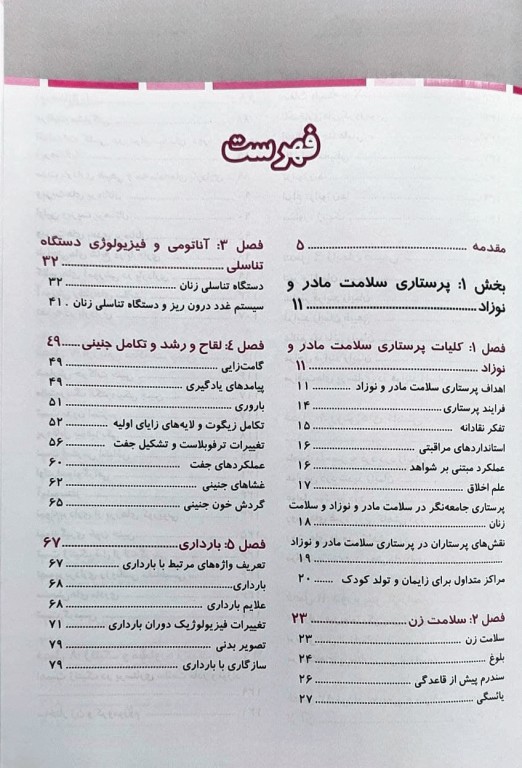 فهرست
مقدمه ........ ۵
بخش ۱: پرستاری سلامت مادر و
نوزاد ........ ۱۱
فصل ۱: کلیات پرستاری سلامت مادر و
نوزاد ........ ۱۱
اهداف پرستاری سلامت مادر و نوزاد ........ ۱۱
فرایند پرستاری ........ ۱۴
تفکر نقادانه ........ ۱۵
استانداردهای مراقبتی ........ ۱۶
عملکرد مبتنی بر شواهد ........ ۱۶
علم اخلاق ........ ۱۷
پرستاری جامعه‌نگر در سلامت مادر و نوزاد و سلامت
زنان ........ ۱۸
نقش‌های پرستاران در پرستاری سلامت مادر و نوزاد
........ ۱۹
مراکز متداول برای زایمان و تولد کودک ........ ۲۰
فصل ۲: سلامت زن ........ ۲۳
سلامت زن ........ ۲۳
بلوغ ........ ۲۴
سندرم پیش از قاعدگی ........ ۲۶
یائسگی ........ ۲۷
فصل ۳: آناتومی و فیزیولوژی دستگاه
تناسلی ........ ۳۲
دستگاه تناسلی زنان ........ ۳۲
سیستم غدد درون ریز و دستگاه تناسلی زنان . ۴۱
فصل ۴: لقاح و رشد و تکامل جنینی ........ ۴۹
گامت‌زایی ........ ۴۹
پیامدهای یادگیری ........ ۴۹
باروری ........ ۵۱
تکامل زیگوت و لایه‌های زایای اولیه ........ ۵۲
تغییرات ترفوبلاست و تشکیل جفت ........ ۵۶
عملکردهای جفت ........ ۶۰
غشاهای جنینی ........ ۶۲
گردش خون جنینی ........ ۶۵
فصل ۵: بارداری ........ ۶۷
تعریف واژه‌های مرتبط با بارداری ........ ۶۷
بارداری ........ ۶۸
علایم بارداری ........ ۶۸
تغییرات فیزیولوژیک دوران بارداری ........ ۷۱
تصویر بدنی ........ ۷۹
سازگاری با بارداری ........ ۷۹